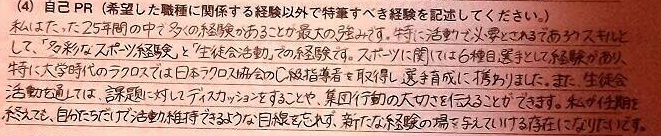 (4) 自己PR（希望した職種に関係する経験以外で特筆すべき経験を記述してください。）
私はたった25年間の中で多くの経験があることが最大の強みです。特に活動で必要とされるであろうスキルと
して、「多彩なスポーツ経験」と「生徒会活動」での経験です。スポーツに関しては6種目選手として経験があり、
特に大学時代のラクロスでは日本ラクロス協会のC級指導者を取得し選手育成に携わりました。また、生徒会
活動を通しては、課題に対してディスカッションをすることや、集団行動の大切さを伝えることができます。私が任期を
終えても、自分たちだけで活動維持できるような目線を忘れず、新たな経験の場を与えていける存在になりたいです。